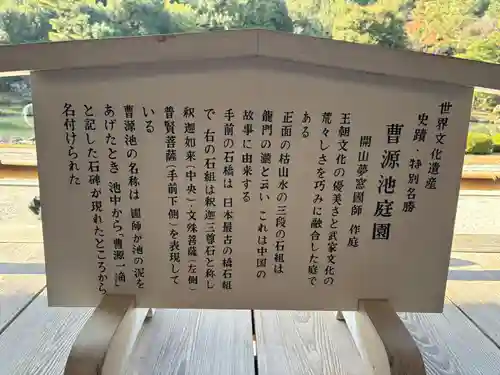 世界文化遺産
史蹟・特別名勝
曹源池庭園
開山夢窓國師 作庭
王朝文化の優美さと武家文化の
荒々しさを巧みに融合した庭で
ある
正面の枯山水の三段の石組は
龍門の瀧と云い これは中国の
故事に由来する
手前の石橋は 日本最古の橋石組
で 右の石組は釈迦三尊石と称し
釈迦如来(中央)・文殊菩薩(左側)
普賢菩薩(手前下側)を表現して
いる
曹源池の名称は 國師が池の泥を
あげたとき 池中から「曹源一滴」
と記した石碑が現れたところから
名付けられた